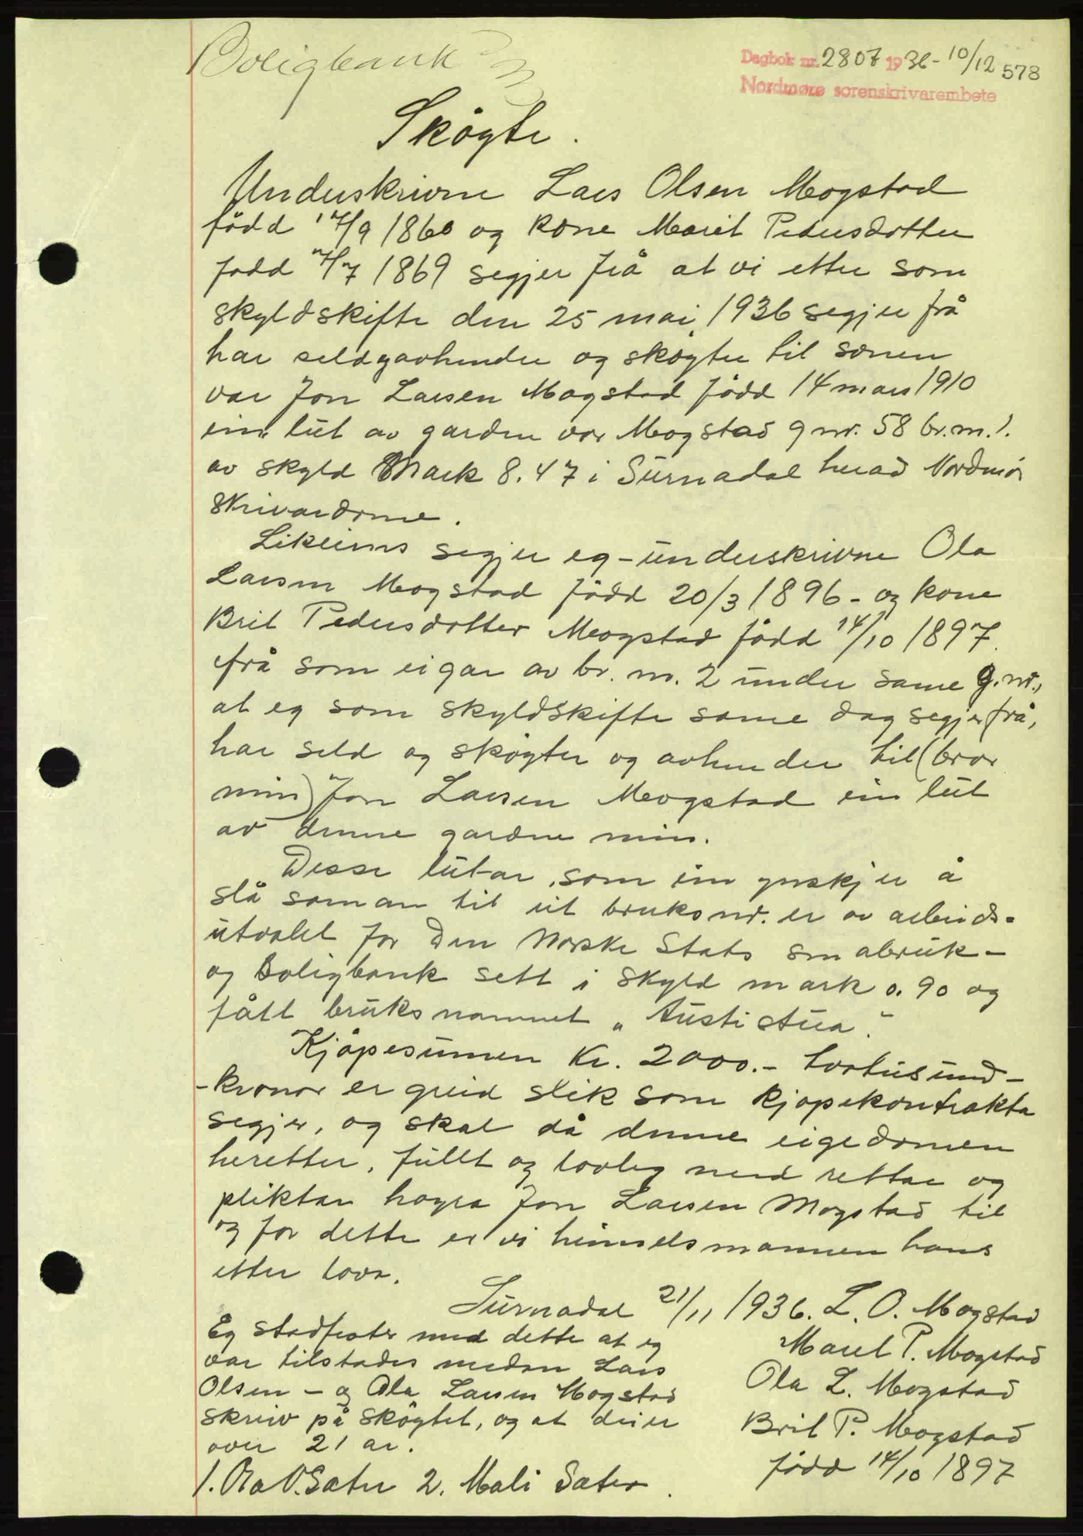 Boligbank
Dagbok nr. 2807 1936 - 10/12 578
Nordmøre sorenskrivarembete
Skøyte.
Underskrivne Lars Olsen Mogstad
född 17/9 1860 og kone Marit Pedersdotter
född 7/7 1869 segjer frå at vi etter som
skyldskifte den 25 mai 1936 segjer frå
har seld, avhender og skøyter til sonen
vår Jon Larsen Mogstad född 14 mars 1910
ein lut av garden vår Mogstad g nr. 58 br.nr. 1.
av skyld Mark 8.47 i Surnadal herad Nordmør
skrivardøme.
Likeeins segjer eg - underskrivne Ola
Larsen Mogstad född 20/3 1896 - og kone
Brit Pedersdotter Mogstad född 14/10 1897.
frå som eigar av br. nr. 2 under same g.nr.,
at eg som skyldskifte same dag segjer frå,
har seld og skøyter og avhender til (bror
min) Jon Larsen Mogstad ein lut
av denne garden min.
Desse lutar, som ein ynskjer å
slå saman til eit bruksnr. er av arbeids-
utvalet for Den Norske Stats småbruk-
og Boligbank sett i skyld mark 0.90 og
fått bruksnamnet "Austistua".
Kjøpesumen Kr. 2000.- totusund-
-kronor er greid slik som kjøpekontrakta
segjer, og skal då denne eigedomen
heretter, fullt og lovleg med rettar og
pliktar høyra Jon Larsen Mogstad til
og for dette er vi heimelsmannen hans
etter lova.
Surnadal 21/11 1936. L. O. Mogstad
Marit P. Mogstad
Ola L. Mogstad
Brit P. Mogstad
född 14/10 1897
Eg stadfester med dette at eg
var tilstades medan Lars
Olsen - og Ola Larsen Mogstad
skreiv på skøytet, og at dei er
over 21 år.
1. Ola O. Sæter 2. Mali Sæter.